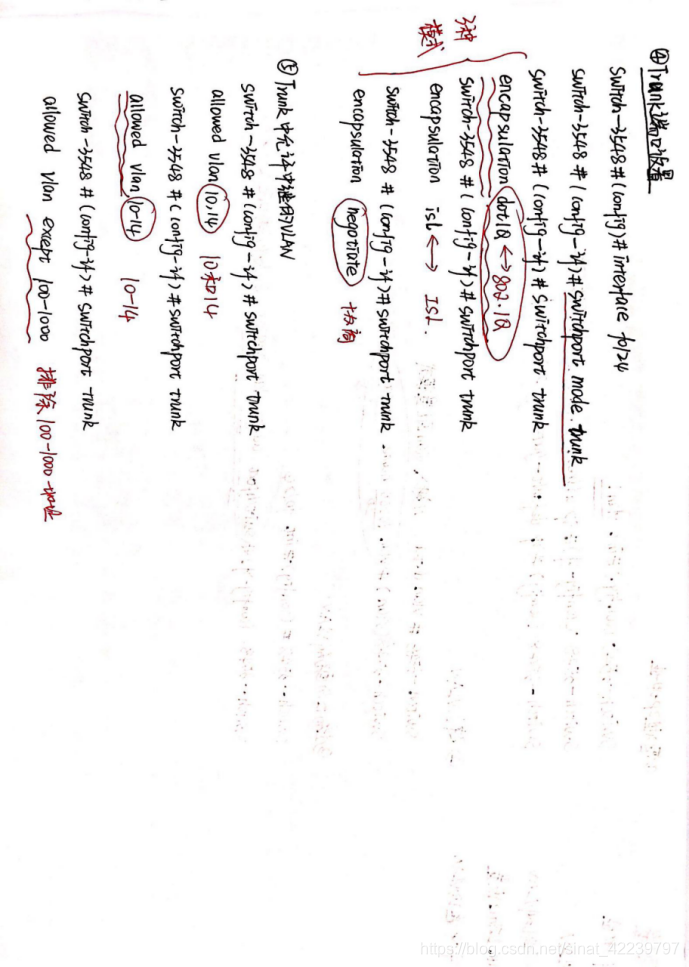 ④Trunk端口设置
Switch-3548#(config)# interface f0/24
switch-3548 # (config-if)# switchport mode trunk
switch-3548 # (config-if)# switchport trunk
encapsulation dot1Q ↔ 802.1Q
3种
模式
switch-3548 # (config-if)# switchport trunk
encapsulation isl ↔ ISL.
switch-3548 # (config-if)# switchport trunk
encapsulation negotiate 协商
⑤Trunk中允许中继的VLAN
switch-3548 # (config-if)# switchport trunk
allowed vlan 10.14 10和14
switch-3548 # (config-if)# switchport trunk
allowed vlan 10-14 10-14
switch-3548 # (config-if)# switchport trunk
allowed vlan except 100-1000 排除100-1000
https://blog.csdn.net/sinat_42239797